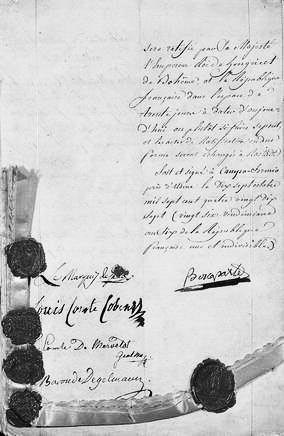 sera ratifié par Sa Majesté
l'Empereur Roi de Hongrie et
de Bohême, et la République
française dans l'espace de
trente jours à dater d'aujour-
d'hui ou plutôt si faire se peut
et les actes de Ratification en due
forme seront échangés à
fait et signé à Campo-formio
près d'Udine le Dix sept octobre
mil sept cent quatre vingt dix
sept (vingt six Vendémiaire
an six de la République
française une et indivisible)
Le Marquis de
Bonaparte
Louis Comte Cobenzl
Comte De Merveldt
Baron de Degelmann